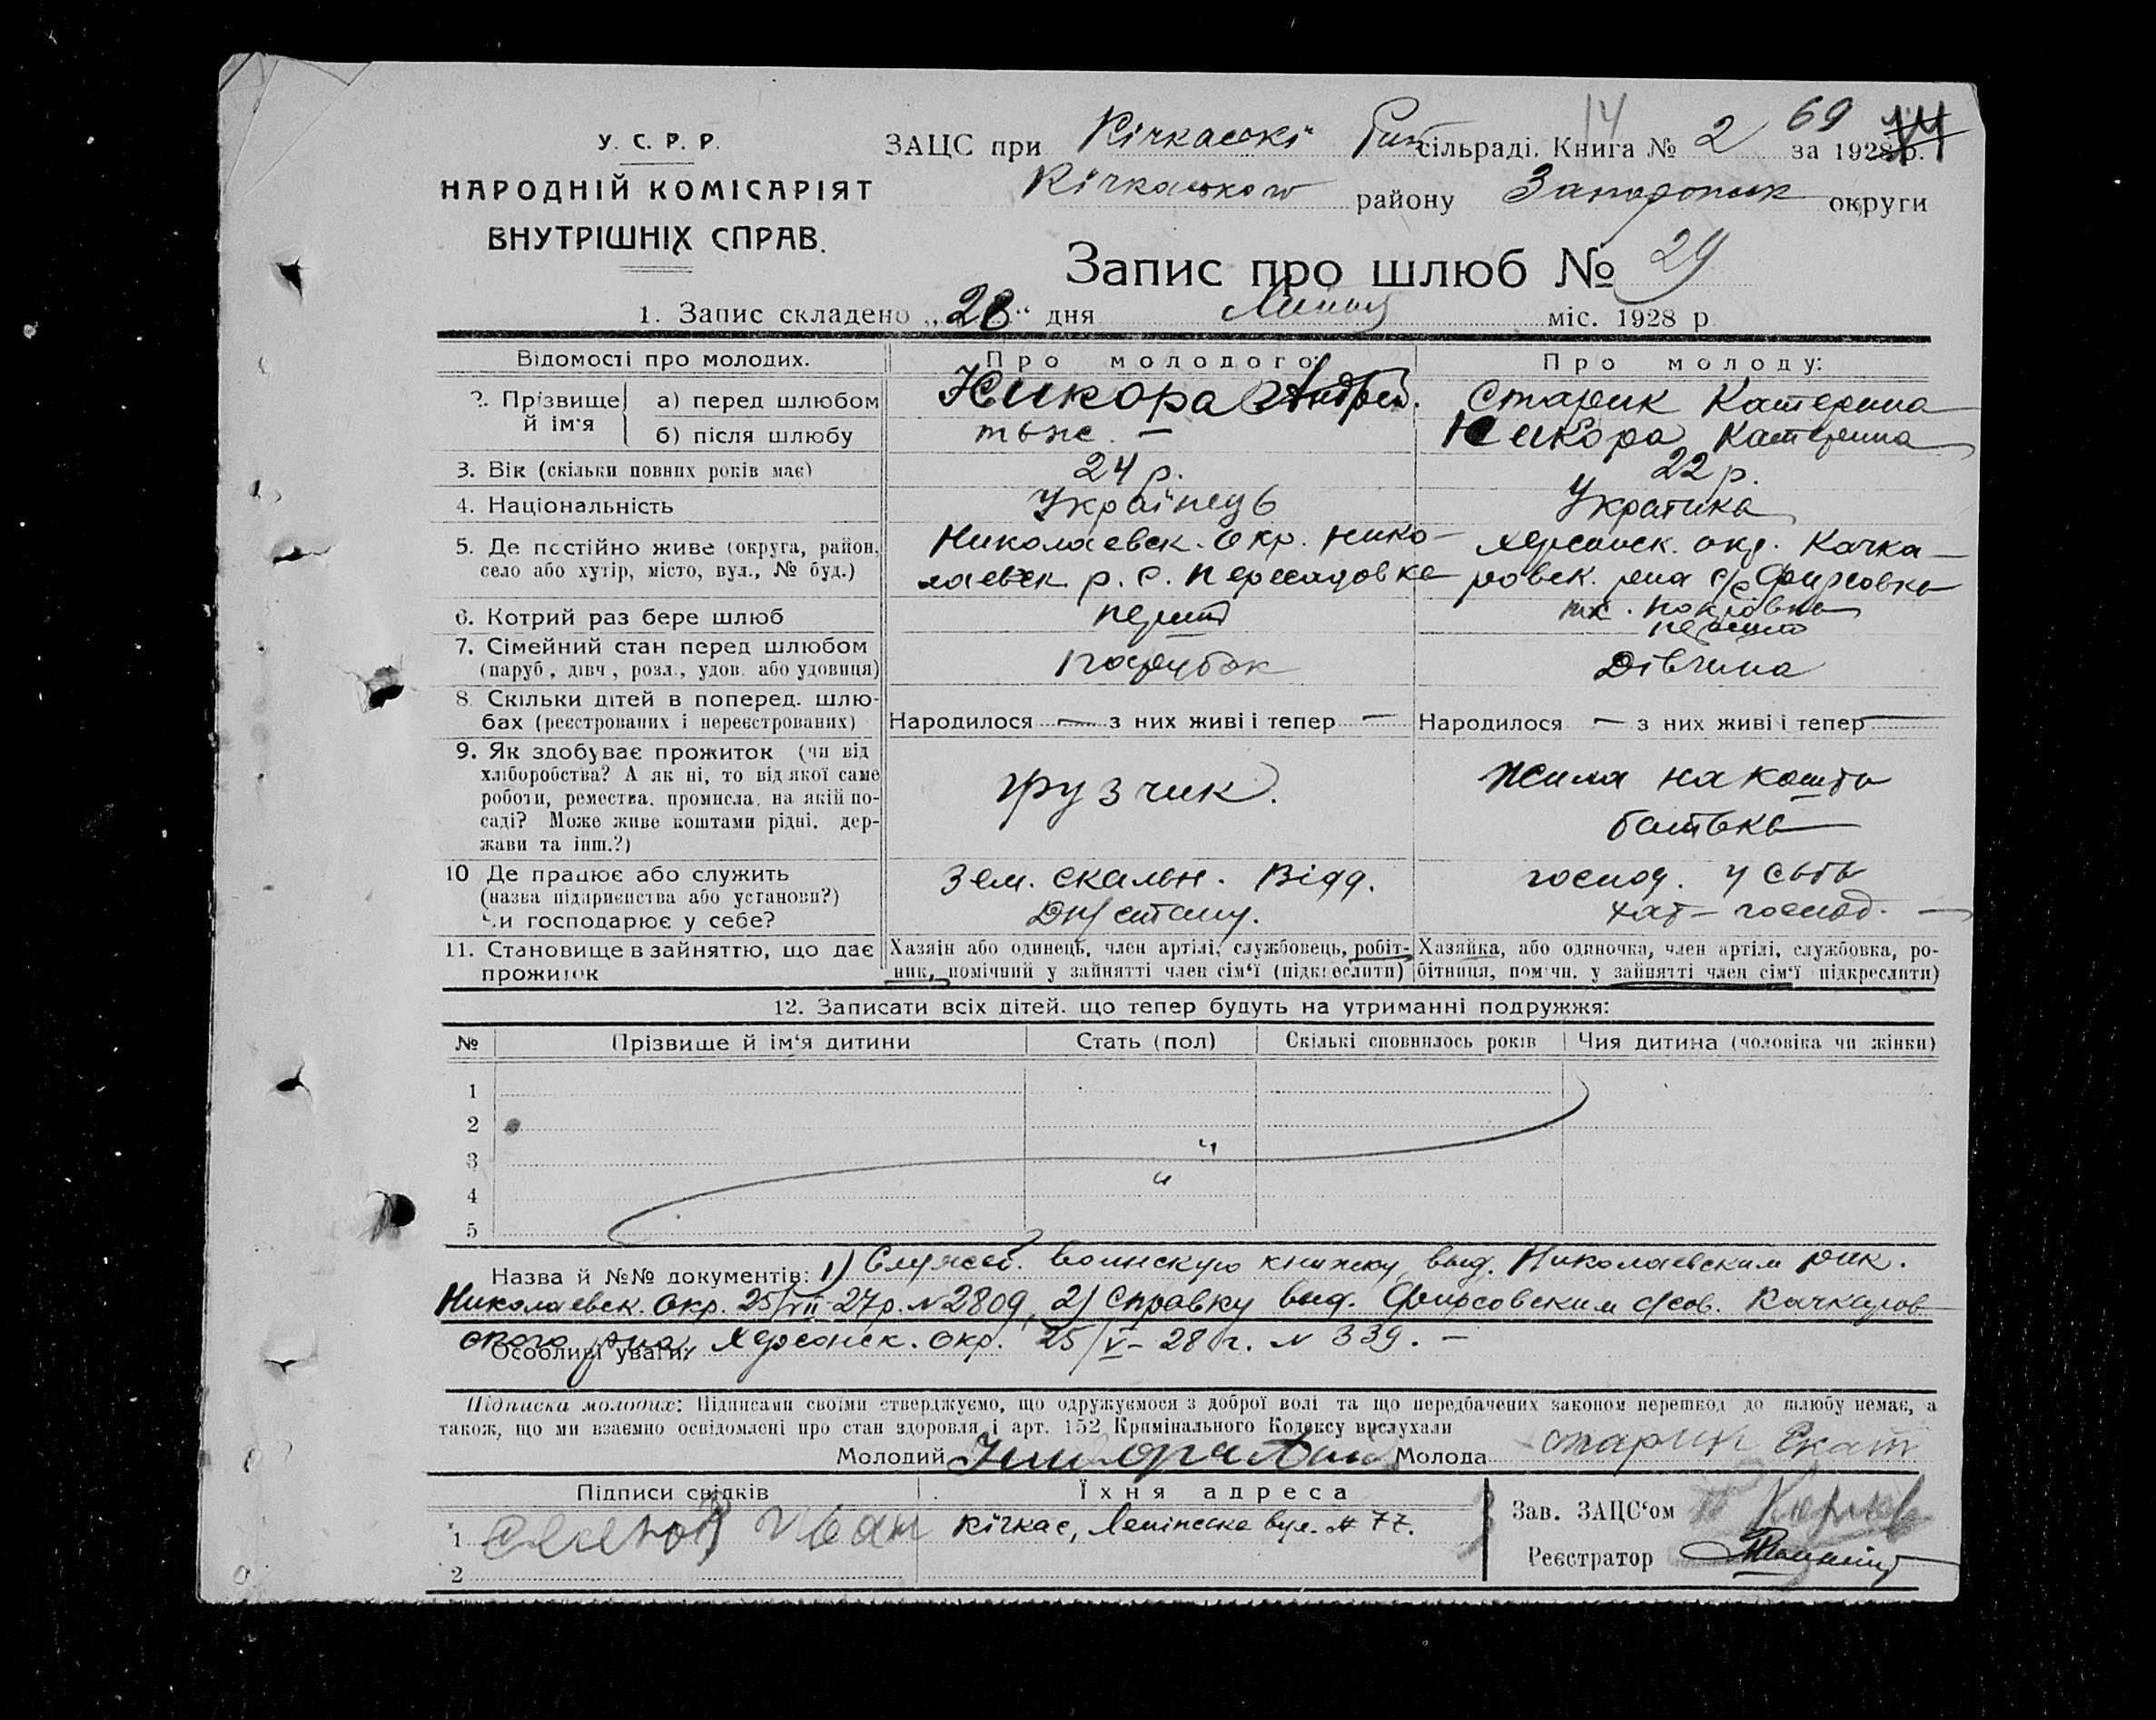 14 69
У. С. Р. Р.
ЗАЦС при Кічкаські сільраді. Книга № 2 за 1928 р.
НАРОДНІЙ КОМІСАРІЯТ
Кічкаського району Запоріжск округи
ВНУТРІШНІХ СПРАВ.
Запис про шлюб № 29
1. Запис складено „28“ дня Липня міс. 1928 р
Відомості про молодих. Про молодого: Про молоду:
2. Прізвище й ім‘я а) перед шлюбом Никора Андрей. Старик Катерина
б) після шлюбу тьже. — Никора Катерина
3. Вік (скільки повних років має) 24 р. 22 р.
4. Національність Українець Украінка
5. Де постійно живе (округа, район, Николаевск. окр. Нико- Херсонск. окр. Качка-
село або хутір, місто, вул., № буд.) лаевск р. с. Пересадовке ровск. рна с/р Фирсовка
Покровка
6. Котрий раз бере шлюб перший перший
7. Сімейний стан перед шлюбом парубок Дівчина
(паруб, дівч, розл., удов. або удовиця)
8. Скільки дітей в поперед. шлю-
бах (реєстрованих і нереєстрованих) Народилося — з них живі і тепер — Народилося — з них живі і тепер —
9. Як здобуває прожиток (чи від
хліборобства? А як ні, то від якої саме
роботи, ремества, промисла, на якій по-
саді? Може живе коштами рідні, дер-
жави та інш.?)
грузчик. жила на кошты
батька
10 Де працює або служить Зем. скальн. Відд. господ. у
(назва підприємства або установи?) Днепстану. хат— господ. —
чи господарює у себе?
11. Становище в зайняттю, що дає Хазяїн або одинець, член артілі, службовець, робіт- Хазяйка, або одиночка, член артілі, службовка, ро-
прожиток ник, помічний у зайнятті член сім‘ї (підкреслити) бітниця, помічн. у зайнятті член сім‘ї підкреслити)
12. Записати всіх дітей, що тепер будуть на утриманні подружжя:
№ Прізвище й ім‘я дитини Стать (пол) Скількі сповнилось років Чия дитина (чоловіка чи жінки)
1
2
3
4
5
Назва й №№ документів: 1) Служеб. воинскую книжку выд. Николаевским рик.
Николаевск. окр. 25/VII-27р. N 2809, 2) Справку выд. Фирсовским с/сов. Качкаров
ского рна, Херсонск. окр. 25/V-28 г. N 339. —
Особливі уваги:
Підписка молодих: Підписами своїми стверджуємо, що одружуємося з доброї волі та що передбачених законом перешкод до шлюбу немає, а
також, що ми взаємно освідомлені про стан здоровля і арт. 152 Кримінального Кодексу вислухали
Молодий Никора Молода Старик Екат
Підписи свідків Їхня адреса
Зав. ЗАЦС‘ом
1 Иван Кічкас, Ленінска вул. № 77.
Реєстратор
2